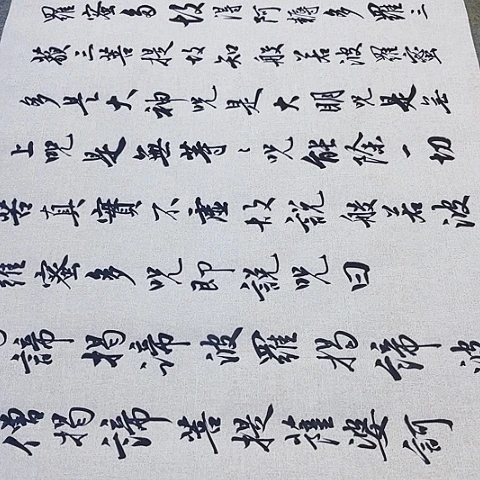 羅蜜多故得阿耨多羅三
藐三菩提故知般若波羅蜜
多是大神咒是大明咒是無
上咒是無等〻咒能除一切
苦真實不虛故說般若波
羅蜜多咒即說咒曰
諦揭諦波羅揭諦波
僧揭諦菩提薩婆訶